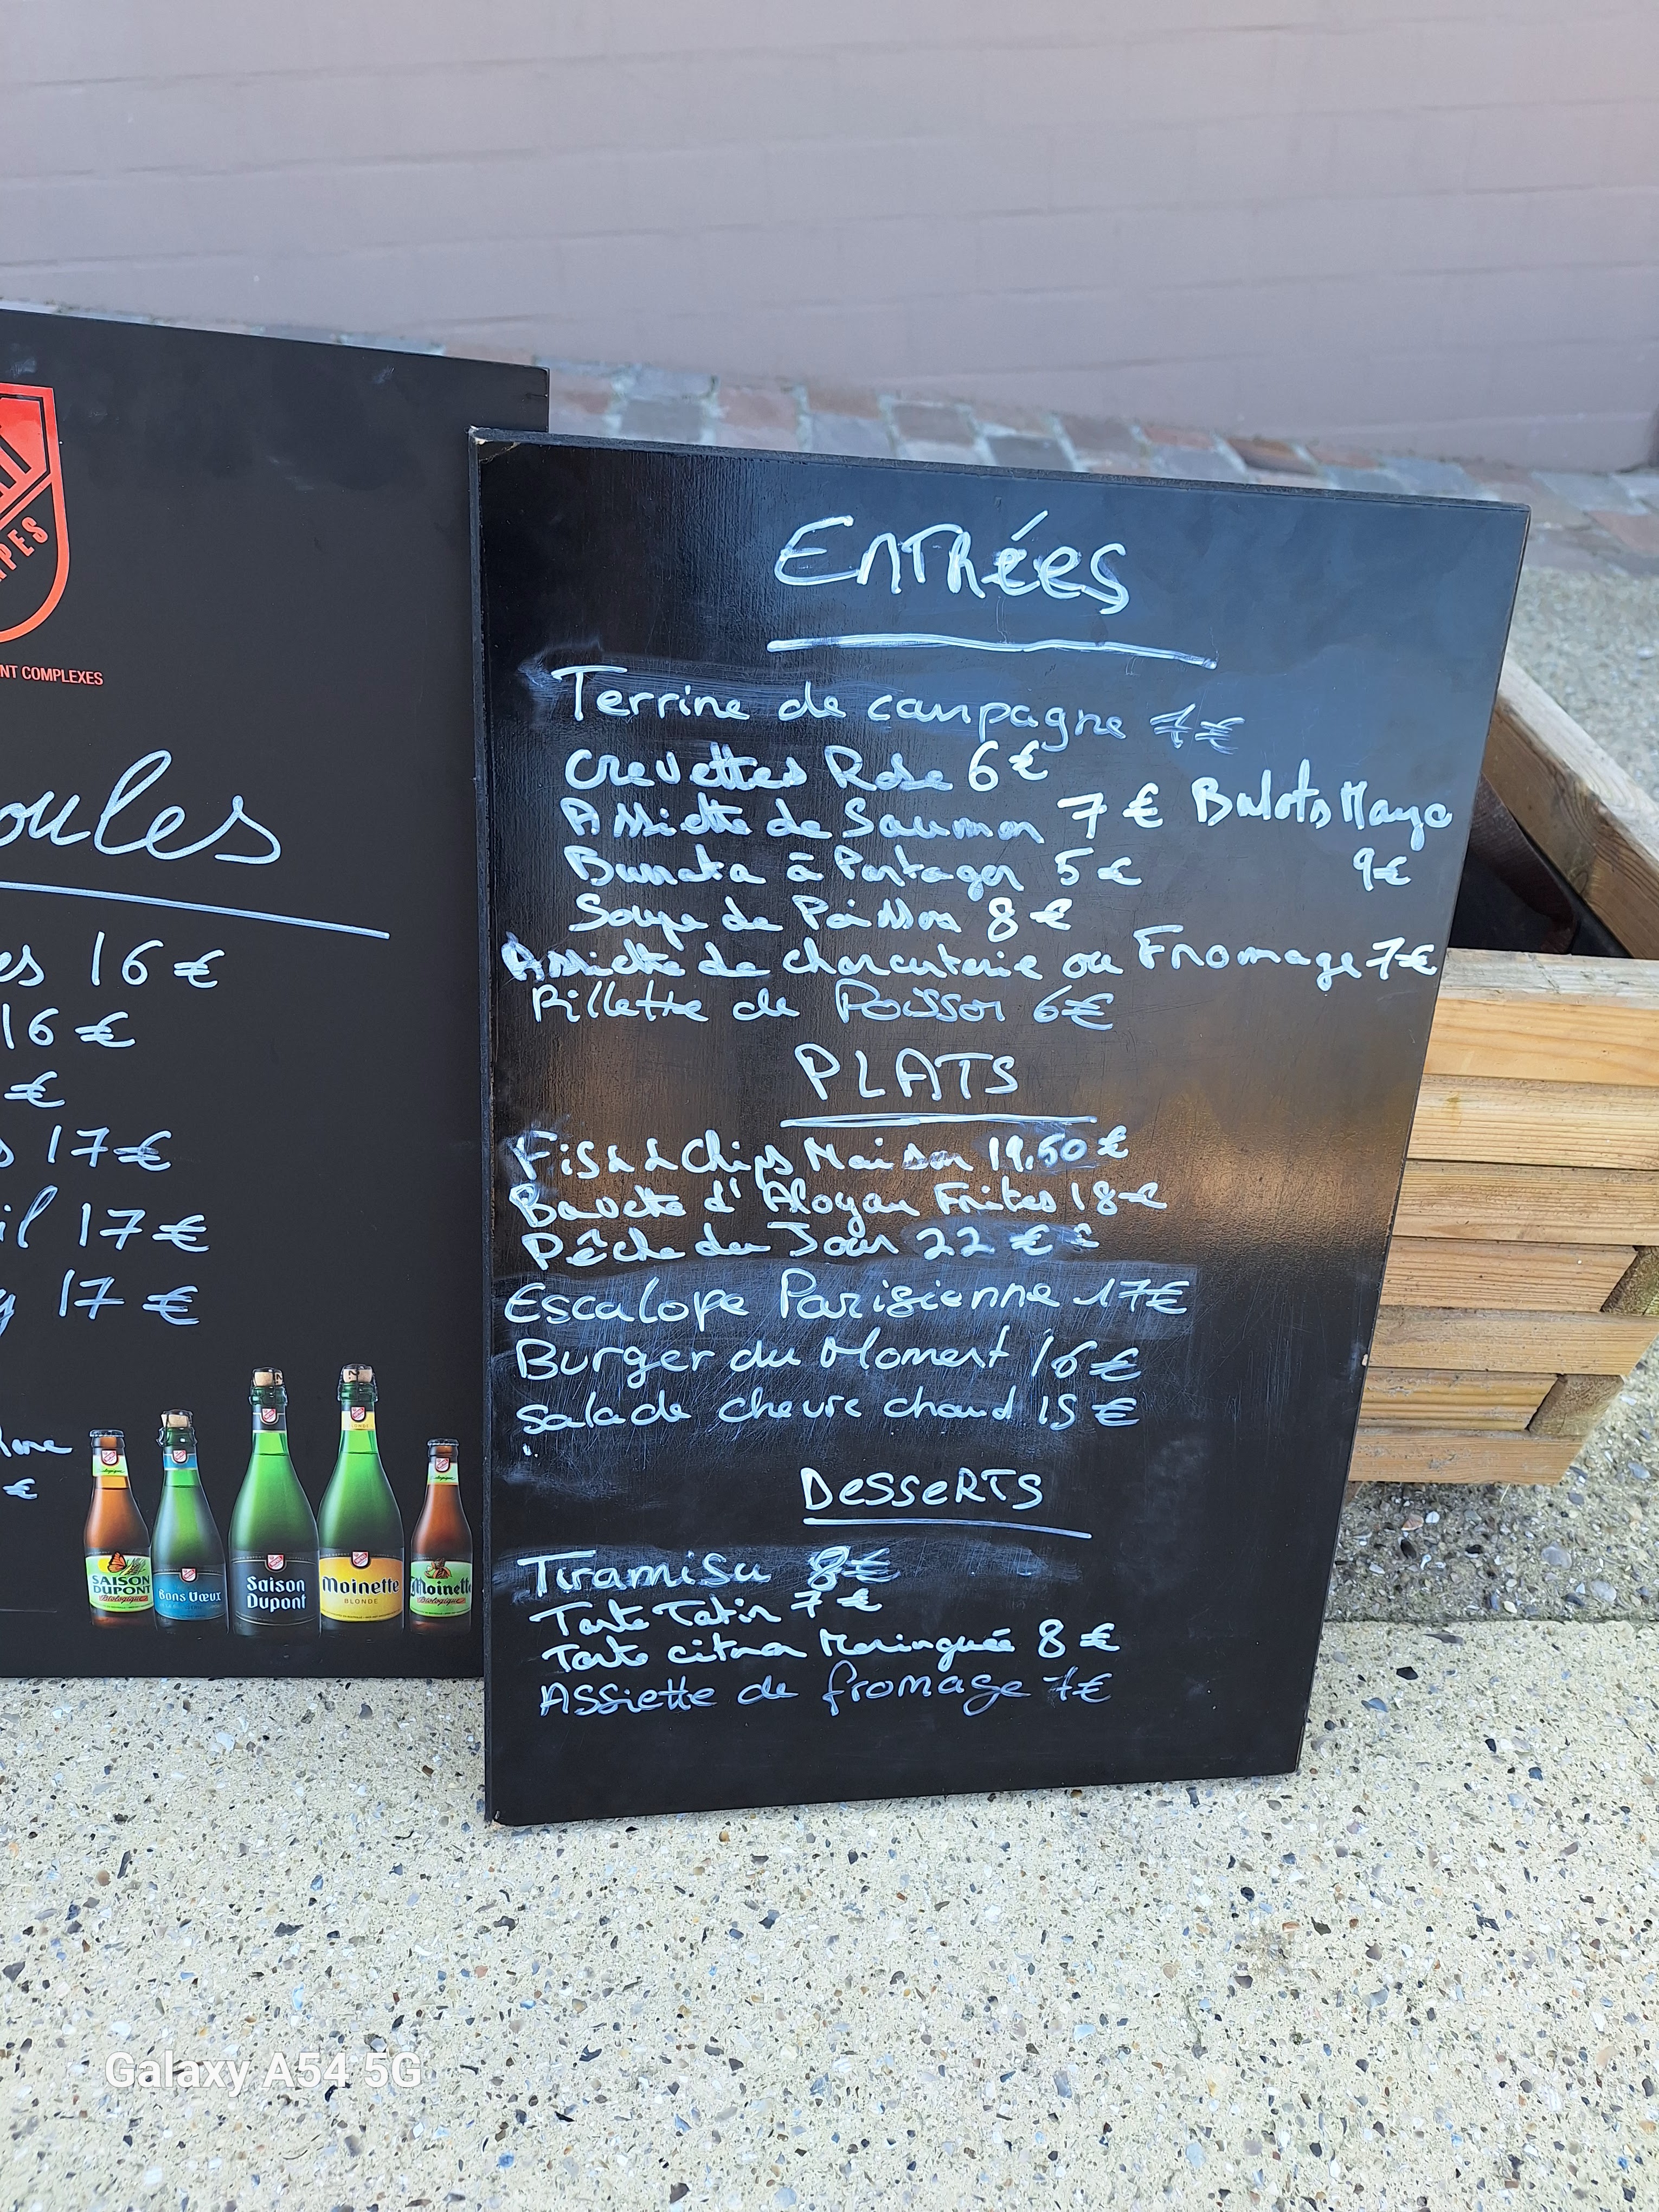 PES
NT COMPLEXES
oules
es 16 €
16 €
€
s 17 €
il 17 €
y 17 €
€
SAISON DUPONT Biologique
Bons Vœux
Saison Dupont
Moinette BLONDE
Moinette Biologique
ENTRÉES
Terrine de campagne 7€
Crevettes Rose 6€
Assiette de Saumon 7 € Bulots Mayo
Burrata à Partager 5 € 9€
Soupe de Poisson 8 €
Assiette de charcuterie ou Fromage 7€
Rillette de Poisson 6€
PLATS
Fish & Chips Maison 19,50 €
Bavette d'Aloyau Frites 18 €
Pêche du Jour 22 €
Escalope Parisienne 17€
Burger du Moment 16 €
Salade chevre chaud 15 €
DESSERTS
Tiramisu 8€
Tarte Tatin 7 €
Tarte citron Meringuée 8 €
Assiette de fromage 7€
Galaxy A54 5G